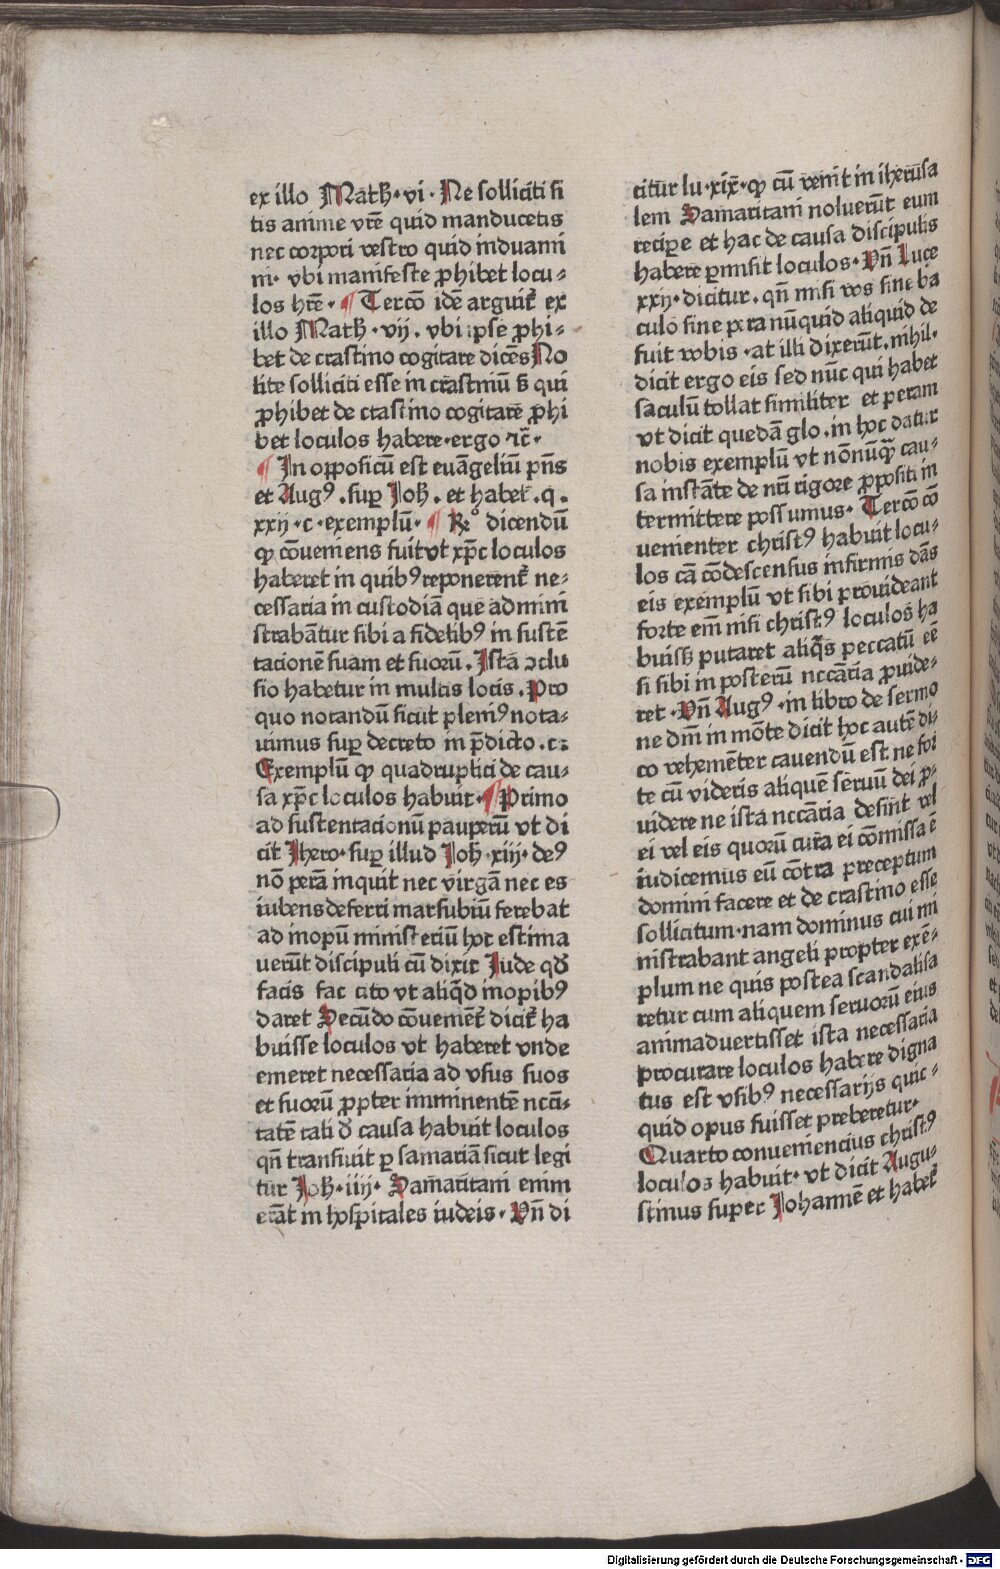 ex illo Math̄·vi· Ne solliciti si
tis anime vr̄e quid manducetis
nec corpori vestro quid induami
ni· vbi manifeste ꝓhibet locu⸗
los hr̄e· ¶ Tercō idē arguit᷑ ex
illo Math̄·vij. vbi ipse ꝓhi⸗
bet de crastino cogitare dicēs No
lite solliciti esse in crastinū s̄ qui
ꝓhibet de crastino cogitare ꝓhi
bet loculos habere·ergo ⁊c̄·
¶ In opposicū est euāgeliū pn̄s
et Augꝰ.suꝑ Joh̄. et habet᷑.q.
xxij·c·exemplū· ¶ Rº dicendū
ꝙ cōueniens fuit vt xp̄c loculos
haberet in quibꝰ reponerent᷑ ne⸗
cessaria in custodiā que admini
strabātur sibi a fidelibꝰ in sustē
tacionē suam et suorū. Ista ↄclu
sio habetur in multis locis. Pro
quo notandū sicut pleniꝰ nota⸗
uimus suꝑ decreto in p̄dicto.c⸗
Exemplū ꝙ quadruplici de cau⸗
sa xp̄c loculos habuit· ¶ Primo
ad sustentacionū pauperū vt di
cit Jhero·suꝑ illud Joh̄·xiij·deꝰ
nō perā inquit nec virgā nec es
iubens deferri marsubiū ferebat
ad inopū ministeriū hoc estima
uerūt discipuli cū dixit Jude qđ
facis fac cito vt aliq̄d inopibꝰ
daret Secūdo cōueniēt᷑ dicit᷑ ha
buisse loculos vt haberet vnde
emeret necessaria ad vsus suos
et suorū ꝓpter imminentē ncc̄i⸗
tatē tali đ causa habuit loculos
qn̄ transiuit ꝑ samariā sicut legi
tur Joh̄·iiij· Samaritani enim
erāt in hospitales iudeis· Vn̄ di
citur lu·xix·ꝙ cū venit in iherusa
lem Samaritani noluerūt eum
recipere et hac de causa discipulis
habere ꝑmisit loculos· Vn̄ Luce
xxij·dicitur. qn̄ misi vos sine ba
culo sine pera nūquid aliquid de
fuit vobis·at illi dixerūt.nihil·
dicit ergo eis sed nūc qui habet
saculū tollat similiter et peram
vt dicit quedā glo.in hoc datur
nobis exemplū vt nōnūqꝫ cau⸗
sa instāte de nr̄i rigore ꝓpositi in
termittere possumus· Tercō cō
uenienter christꝰ habuit locu⸗
los cā cōdescensus infirmis dās
eis exemplū vt sibi prouideant
forte em̄ nisi christꝰ loculos ha
buiss̄ putaret aliq̄s peccatū eē
si sibi in posterū nccāria ꝓuide⸗
ret·Vn̄ Augꝰ·in libro de sermo
ne dn̄i in mōte dicit hoc autē di⸗
co vehemēter cauendū est ne for
te cū videris aliquē seruū dei ꝓ⸗
uidere ne ista nccāria desint vel
ei vel eis quorū cura ei cōmissa ē
iudicemus eū cōtra preceptum
domini facere et de crastino esse
sollicitum·nam dominus cui mi
nistrabant angeli propter exē⸗
plum ne quis postea scandalisa
retur cum aliquem seruorū eius
animaduertisset ista necessaria
procurare loculos habere digna
tus est vsibꝰ necessarijs quic⸗
quid opus fuisset preberetur·
Quarto conueniencius christꝰ
loculos habuit· vt dicit Augu⸗
stinus super Johannē et habet᷑
Digitalisierung gefördert durch die Deutsche Forschungsgemeinschaft - DFG